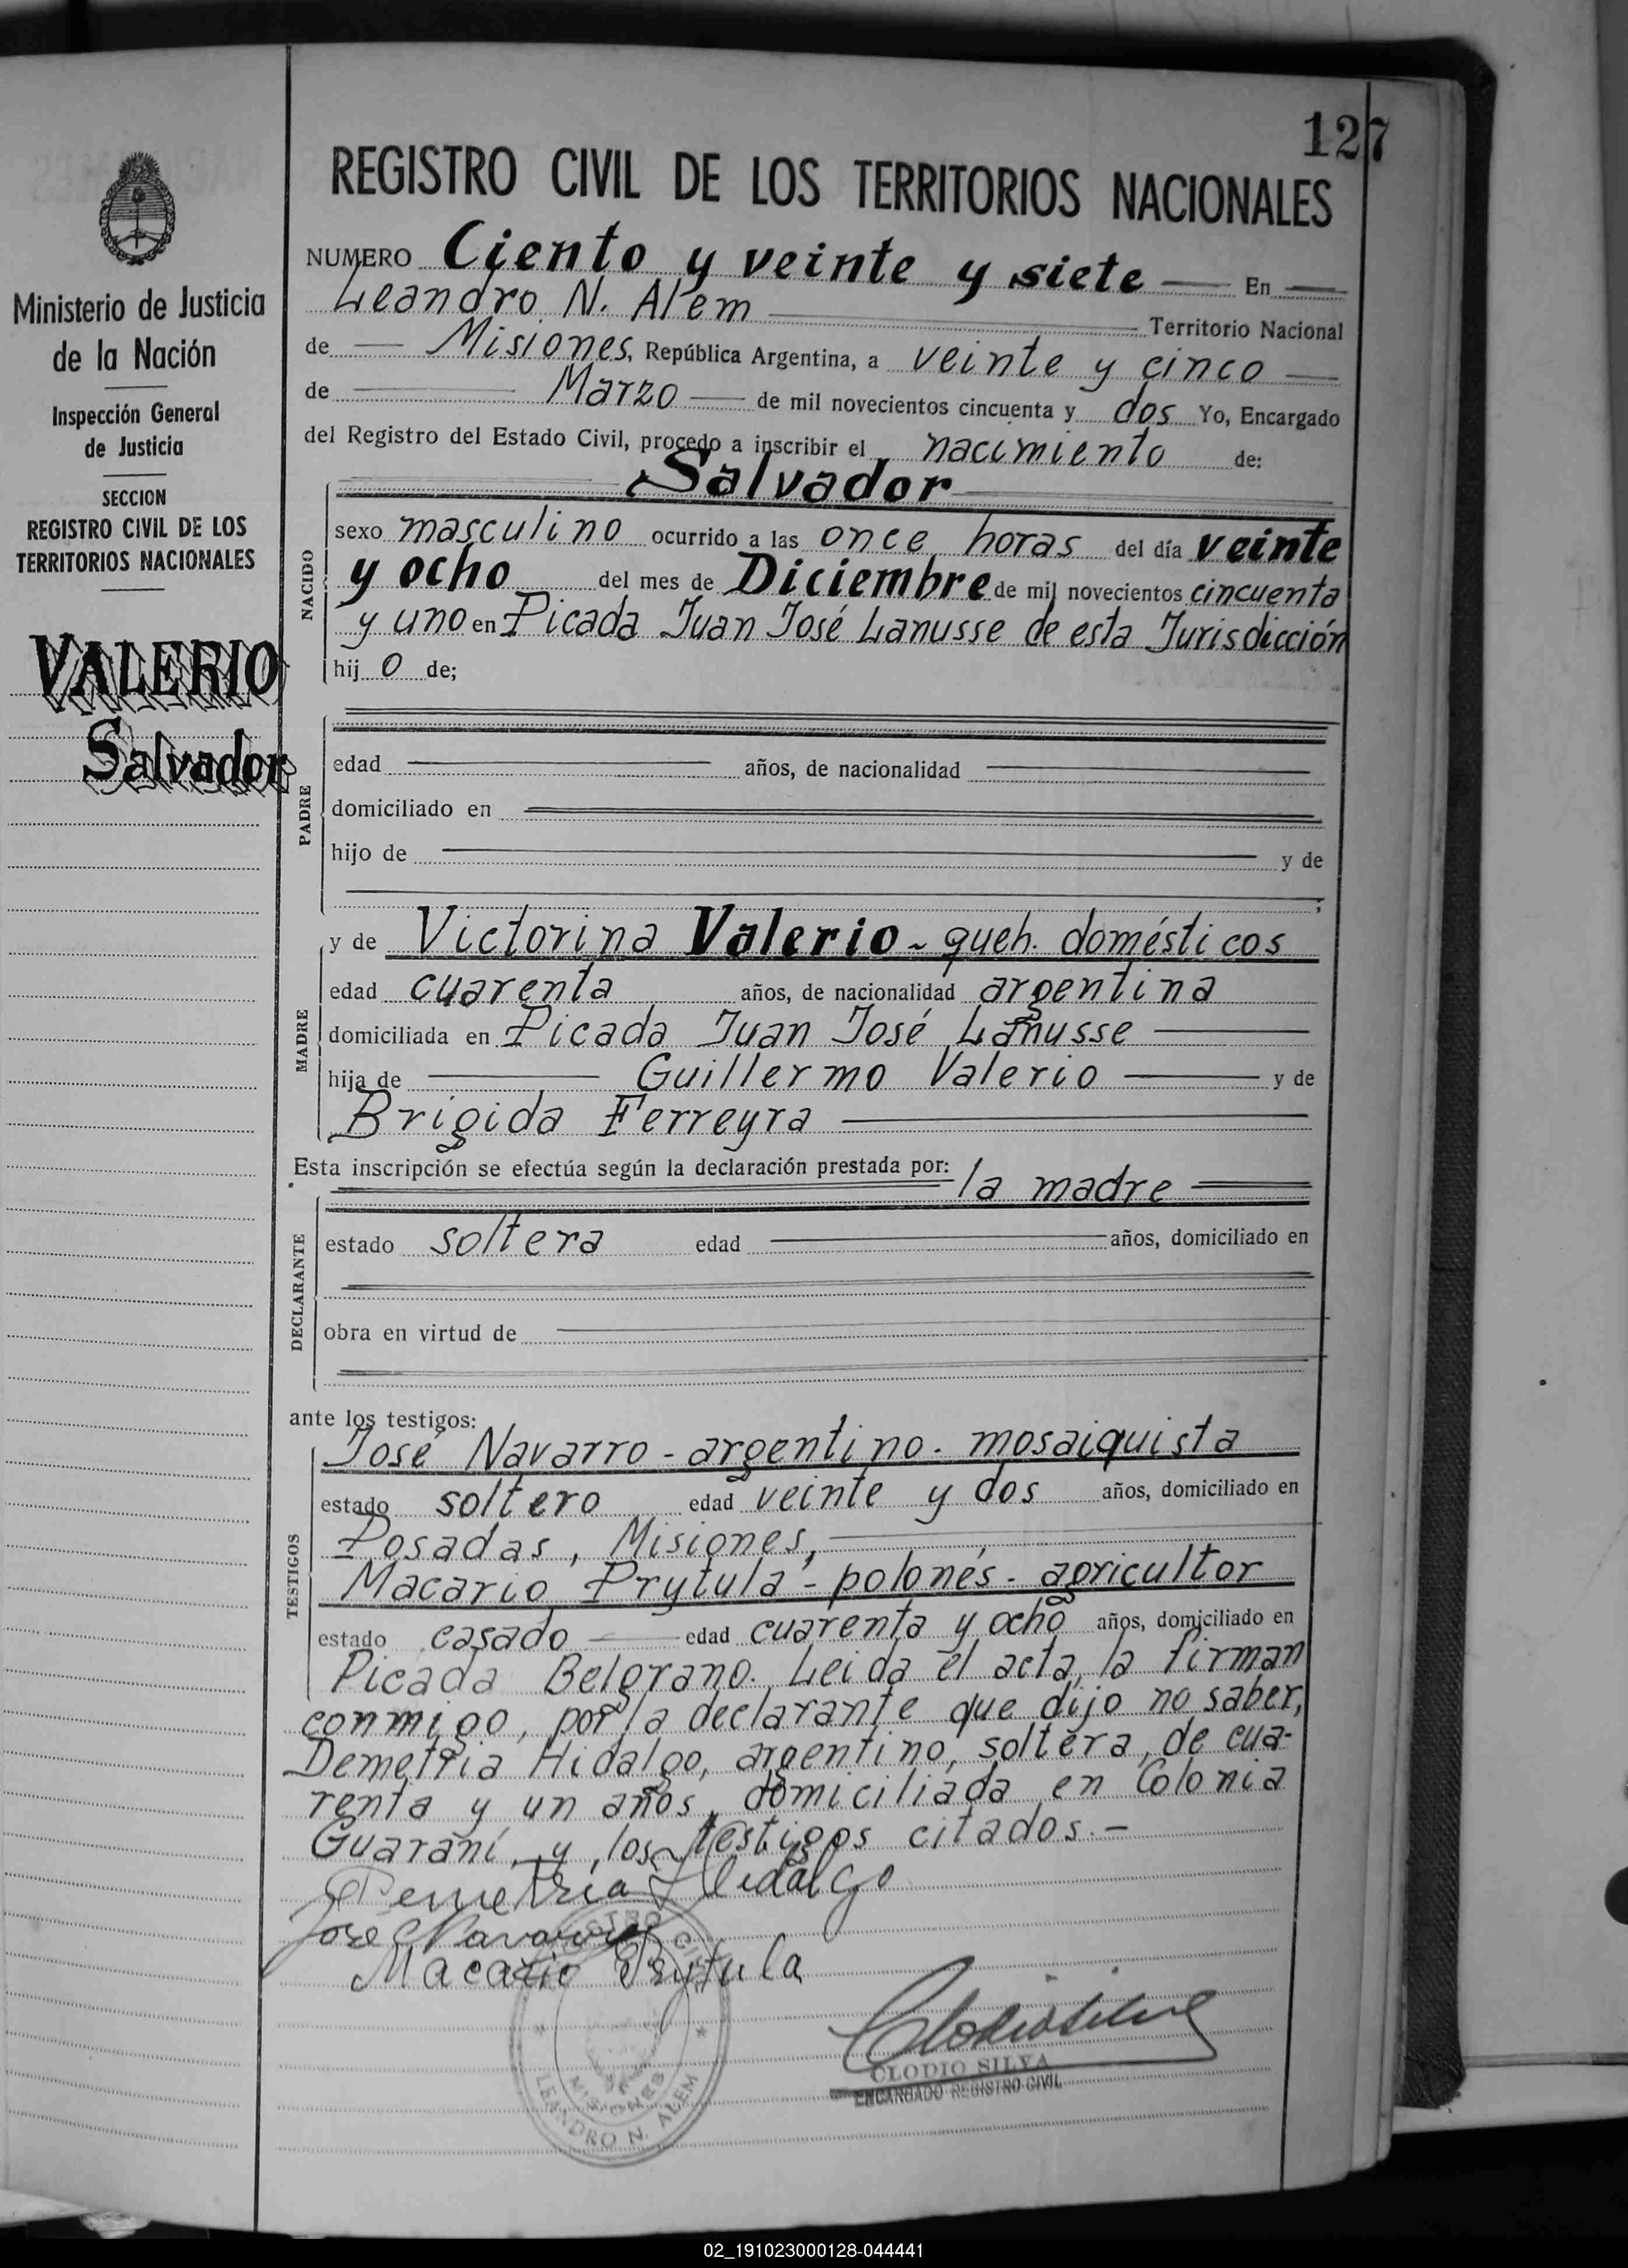 127
REGISTRO CIVIL DE LOS TERRITORIOS NACIONALES
Ministerio de Justicia
de la Nación
Inspección General
de Justicia
SECCION
REGISTRO CIVIL DE LOS
TERRITORIOS NACIONALES
VALERIO
Salvador
NUMERO Ciento y veinte y siete — En —
Leandro N. Alem — Territorio Nacional
de — Misiones, República Argentina, a veinte y cinco —
de — Marzo — de mil novecientos cincuenta y dos Yo, Encargado
del Registro del Estado Civil, procedo a inscribir el nacimiento de:
Salvador
NACIDO
sexo masculino ocurrido a las once horas del día veinte
y ocho del mes de Diciembre de mil novecientos cincuenta
y uno en Picada Juan José Lanusse de esta Jurisdicción
hij o de;
PADRE
edad — años, de nacionalidad —
domiciliado en —
hijo de — y de
— ;
MADRE
y de Victorina Valerio ~ queh. domésticos
edad cuarenta años, de nacionalidad argentina
domiciliada en Picada Juan José Lanusse —
hija de — Guillermo Valerio — y de
Brigida Ferreyra —
Esta inscripción se efectúa según la declaración prestada por: la madre —
DECLARANTE
estado soltera edad — años, domiciliado en
obra en virtud de —
ante los testigos:
TESTIGOS
José Navarro - argentino - mosaiquista
estado soltero edad veinte y dos años, domiciliado en
Posadas, Misiones, —
Macario Prytula - polonés - agricultor
estado casado — edad cuarenta y ocho años, domiciliado en
Picada Belgrano. Leida el acta, la firman
conmigo, por la declarante que dijo no saber,
Demetria Hidalgo, argentino, soltera, de cua-
renta y un años, domiciliada en Colonia
Guaraní, y los testigos citados.-
Demetria Hidalgo
Jose Navarro
Macario Prytula
REGISTRO CIVIL
MISIONES
LEANDRO N. ALEM
Clodio Silva
CLODIO SILVA
ENCARGADO REGISTRO CIVIL
02_191023000128-044441